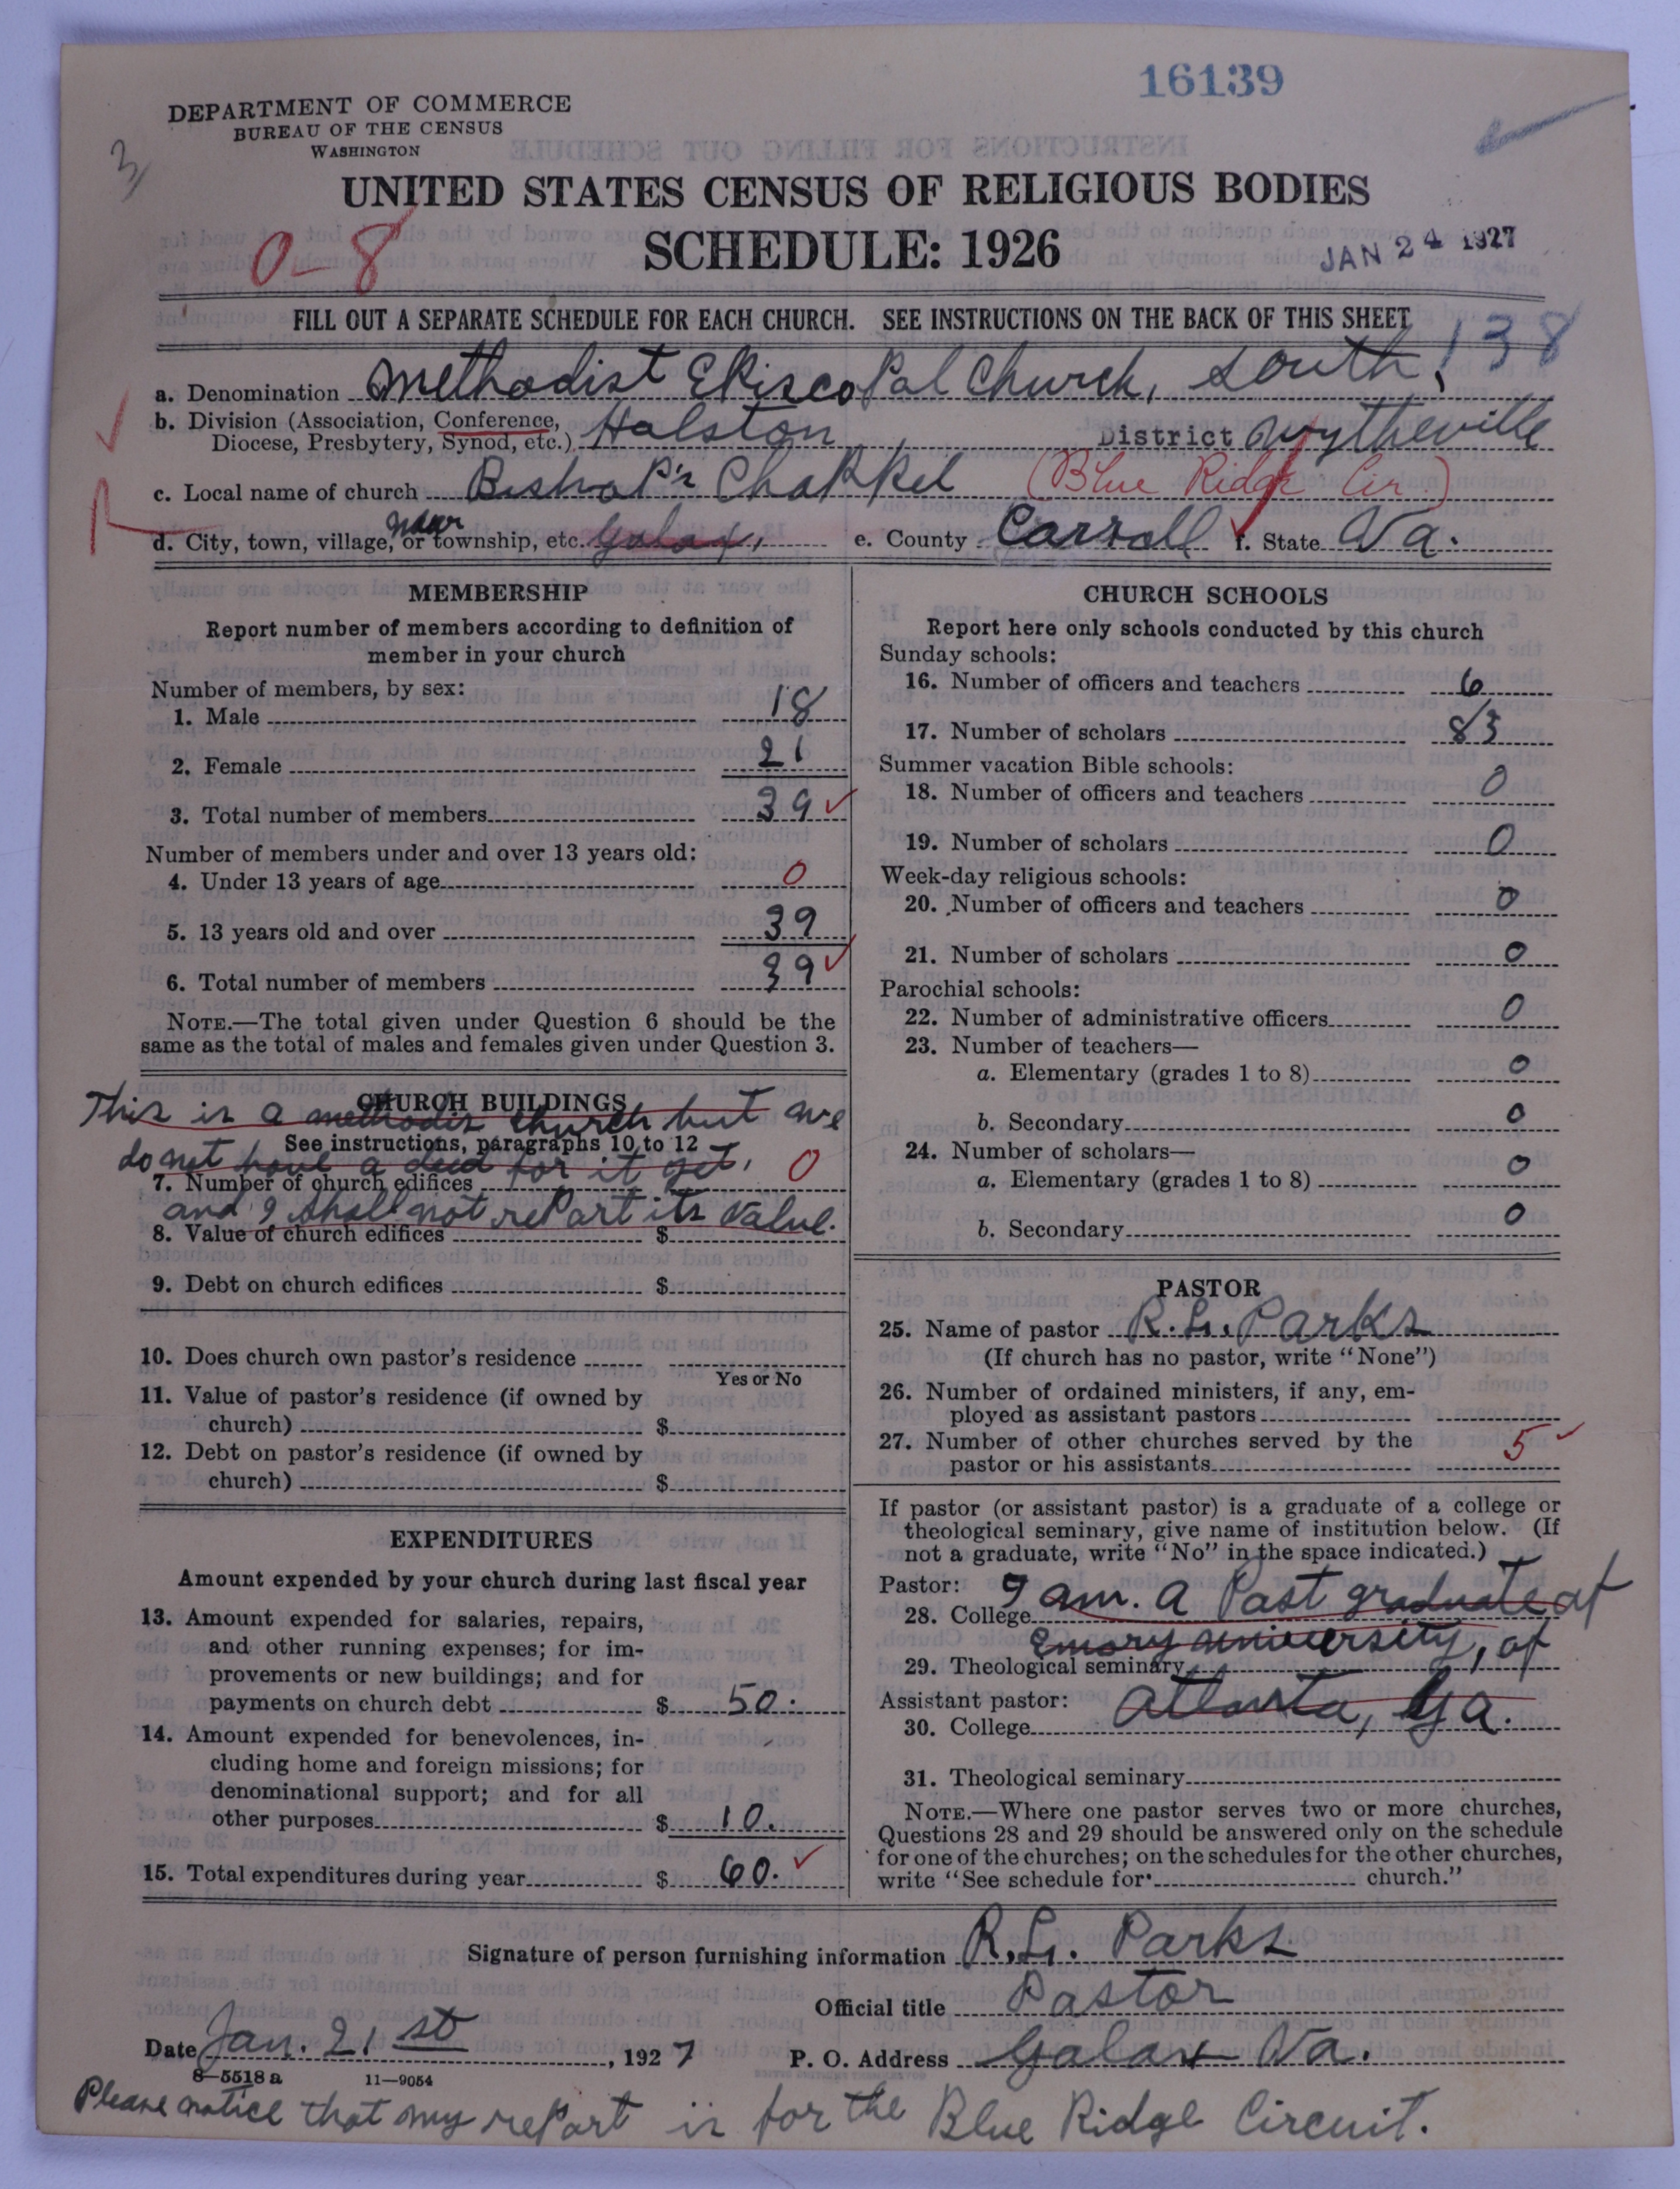 16139
DEPARTMENT OF COMMERCE
BUREAU OF THE CENSUS
WASHINGTON
3
UNITED STATES CENSUS OF RELIGIOUS BODIES
SCHEDULE: 1926
0-8
JAN 24 1927
FILL OUT A SEPARATE SCHEDULE FOR EACH CHURCH. SEE INSTRUCTIONS ON THE BACK OF THIS SHEET
138
a. Denomination Methodist Episcopal Church, South.
b. Division (Association, Conference,
Diocese, Presbytery, Synod, etc.) Halston District Wytheville
c. Local name of church Bishop's Chappel (Blue Ridge Cir.)
d. City, town, village, or township, etc. near Galax, e. County Carroll f. State Va.
MEMBERSHIP
Report number of members according to definition of
member in your church
Number of members, by sex:
1. Male 18
2. Female 21
3. Total number of members 39
Number of members under and over 13 years old:
4. Under 13 years of age 0
5. 13 years old and over 39
6. Total number of members 39
NOTE.—The total given under Question 6 should be the
same as the total of males and females given under Question 3.
CHURCH BUILDINGS
This is a methodis church but we
See instructions, paragraphs 10 to 12
do not have a deed for it yet,
7. Number of church edifices 0
and I shall not report its value.
8. Value of church edifices $
9. Debt on church edifices $
10. Does church own pastor's residence
Yes or No
11. Value of pastor's residence (if owned by
church) $
12. Debt on pastor's residence (if owned by
church) $
EXPENDITURES
Amount expended by your church during last fiscal year
13. Amount expended for salaries, repairs,
and other running expenses; for im-
provements or new buildings; and for
payments on church debt $ 50.
14. Amount expended for benevolences, in-
cluding home and foreign missions; for
denominational support; and for all
other purposes $ 10.
15. Total expenditures during year $ 60.
CHURCH SCHOOLS
Report here only schools conducted by this church
Sunday schools:
16. Number of officers and teachers 6
17. Number of scholars 83
Summer vacation Bible schools:
18. Number of officers and teachers 0
19. Number of scholars 0
Week-day religious schools:
20. Number of officers and teachers 0
21. Number of scholars 0
Parochial schools:
22. Number of administrative officers 0
23. Number of teachers—
a. Elementary (grades 1 to 8) 0
b. Secondary 0
24. Number of scholars—
a. Elementary (grades 1 to 8) 0
b. Secondary 0
PASTOR
25. Name of pastor R. L. Parks
(If church has no pastor, write "None")
26. Number of ordained ministers, if any, em-
ployed as assistant pastors
27. Number of other churches served by the
pastor or his assistants 5
If pastor (or assistant pastor) is a graduate of a college or
theological seminary, give name of institution below. (If
not a graduate, write "No" in the space indicated.)
Pastor:
28. College I am. a Past graduate of
29. Theological seminary Emory university, of
Assistant pastor: Atlanta, Ga.
30. College
31. Theological seminary
NOTE.—Where one pastor serves two or more churches,
Questions 28 and 29 should be answered only on the schedule
for one of the churches; on the schedules for the other churches,
write "See schedule for church."
Signature of person furnishing information R. L. Parks
Official title Pastor
Date Jan. 21st, 1927 P. O. Address Galax Va.
8—5518a 11—9054
Please notice that my report is for the Blue Ridge Circuit.